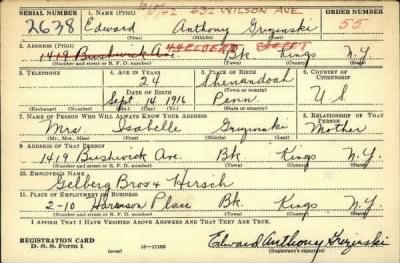 SERIAL NUMBER 1. NAME (Print) 632 WILSON AVE ORDER NUMBER
2638 Edward Anthony Gryzinski 55
(First) (Middle) (Last)
2. ADDRESS (Print)
1419 Bushwick Ave. Bk Kings N.Y.
(Number and street or R. F. D. number) (Town) (County) (State)
3. TELEPHONE 4. AGE IN YEARS 5. PLACE OF BIRTH 6. COUNTRY OF CITIZENSHIP
24 Shenandoah
DATE OF BIRTH (Town or county)
Sept 14 1916 Penn. U S
(Exchange) (Number) (Mo.) (Day) (Yr.) (State or country)
7. NAME OF PERSON WHO WILL ALWAYS KNOW YOUR ADDRESS 8. RELATIONSHIP OF THAT PERSON
Mrs. Isabelle Gryzinski Mother
(Mr., Mrs., Miss) (First) (Middle) (Last)
9. ADDRESS OF THAT PERSON
1419 Bushwick Ave. Bk. Kings N.Y.
(Number and street or R. F. D. number) (Town) (County) (State)
10. EMPLOYER'S NAME
Gelberg Bros & Hirsch
11. PLACE OF EMPLOYMENT OR BUSINESS
2-10 Harrison Place Bk Kings N.Y.
(Number and street or R. F. D. number) (Town) (County) (State)
I AFFIRM THAT I HAVE VERIFIED ABOVE ANSWERS AND THAT THEY ARE TRUE.
REGISTRATION CARD
D. S. S. FORM 1 (over) 16-17105 Edward Anthony Gryzinski
(Registrant's signature)